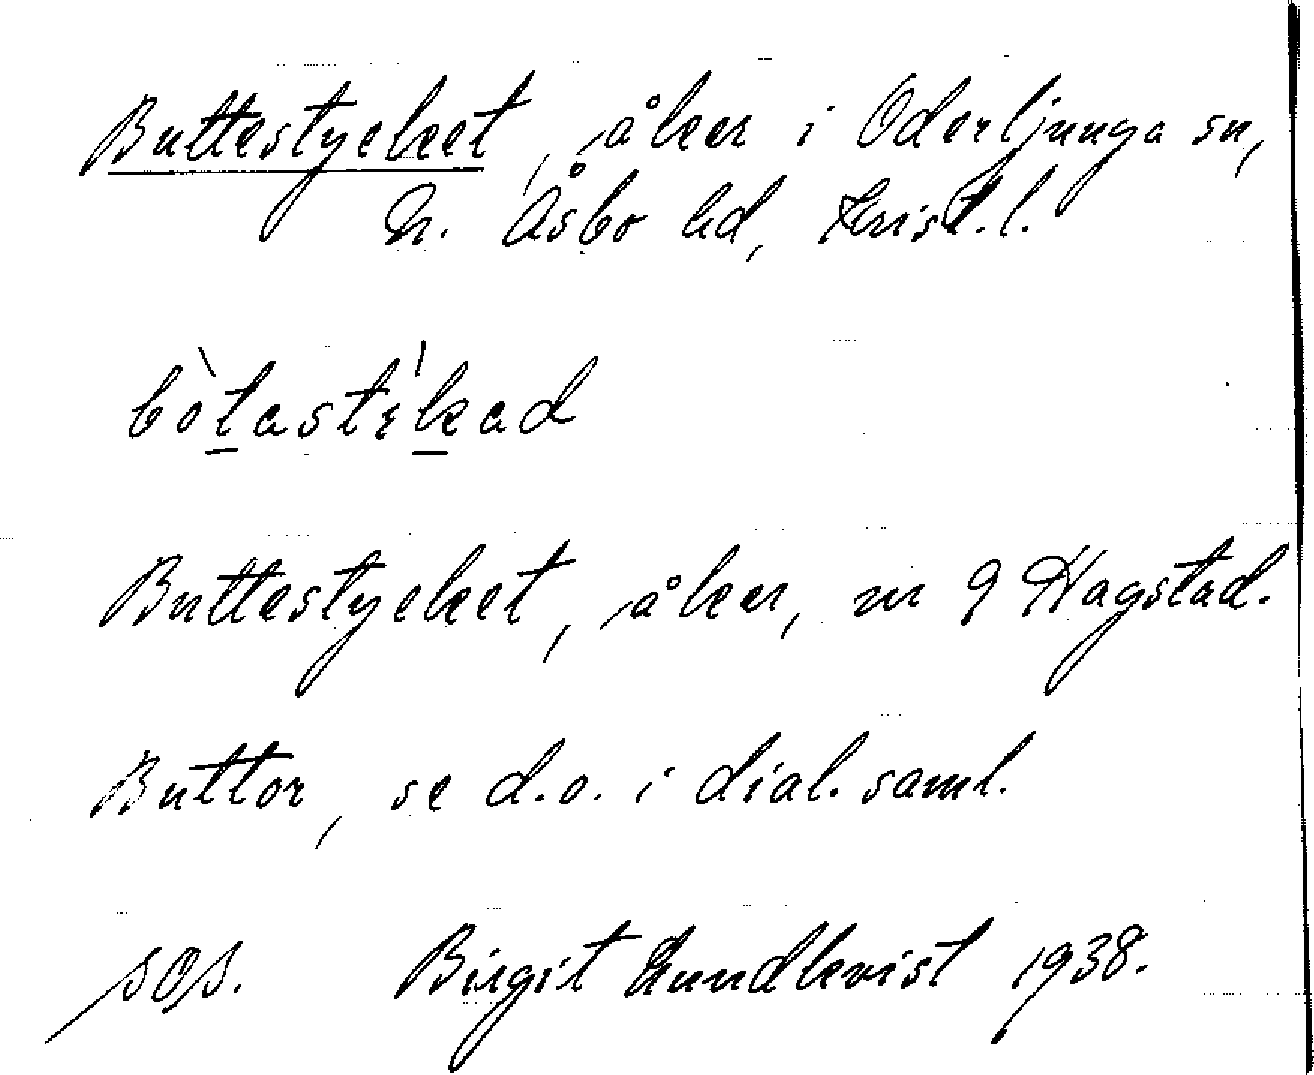 Buttestycket, åker i Oderljunga sn,
N. Åsbo hd, Krist. l.
bòtastɛ́kad
Buttestycket, åker, nr 9 Hagstad.
Buttor, se d.o. i dial. saml.
SOS. Birgit Lundkvist 1938.